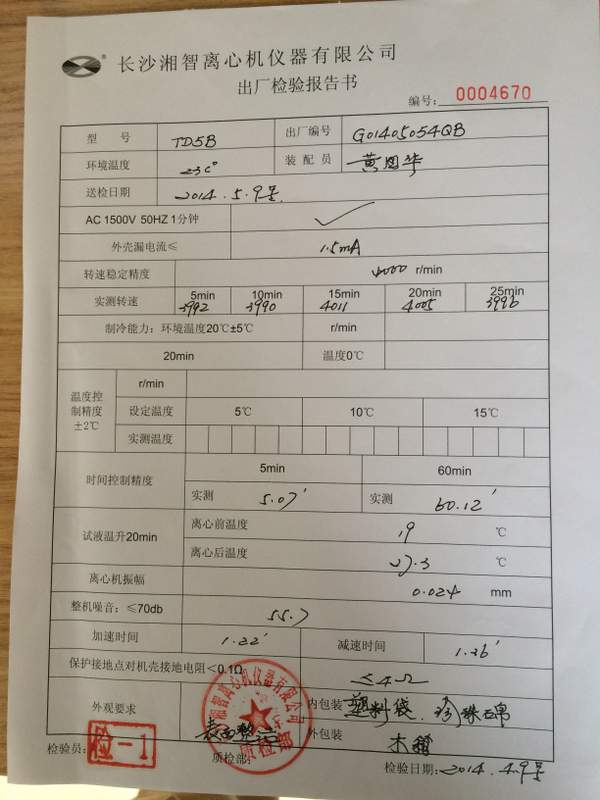 长沙湘智离心机仪器有限公司
出厂检验报告书
编号: 0004670
型 号 TD5B 出厂编号 G01405054QB
环境温度 23C° 装 配 员
送检日期 2014.5.9号
AC 1500V 50HZ 1分钟 ✓
外壳漏电流≤ 1.5mA
转速稳定精度 4000 r/min
实测转速 5min 10min 15min 20min 25min
3992 3990 4011 4005 3996
制冷能力: 环境温度20℃±5℃ r/min
20min 温度0℃
温度控制精度±2℃ r/min
设定温度 5℃ 10℃ 15℃
实测温度
时间控制精度 5min 60min
实测 5.07′ 实测 60.12′
试液温升20min 离心前温度 19 ℃
离心后温度 27.3 ℃
离心机振幅 0.024 mm
整机噪音: ≤70db 55.7
加速时间 1.22′ 减速时间 1.26′
保护接地点对机壳接地电阻<0.1Ω ≤4Ω
外观要求 表面整洁 内包装 塑料袋、珍珠棉
外包装 木箱
检验员: 检-1 质检部: 检验日期: 2014.4.9号
长沙湘智离心机仪器有限公司
质检部